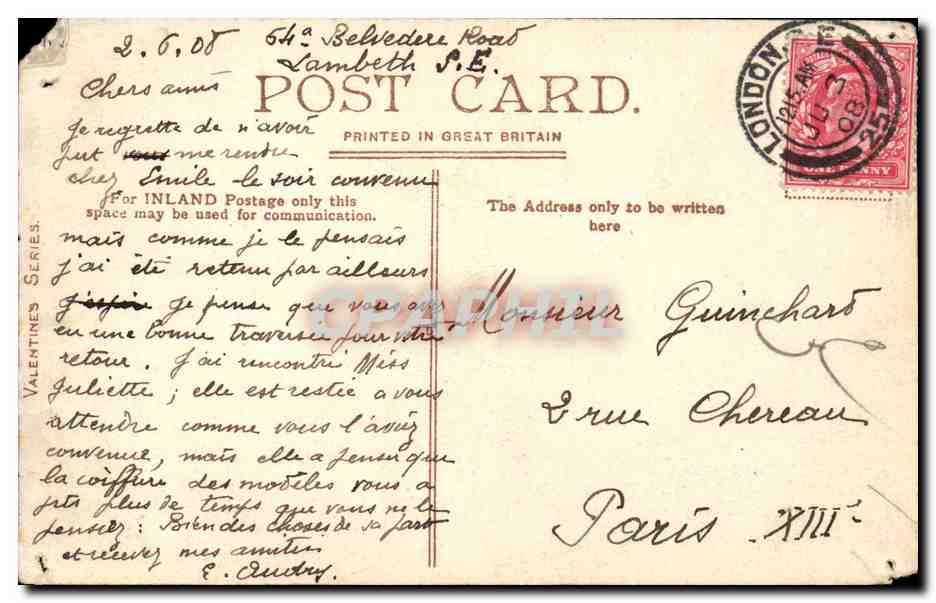 2.6.08 64a Belvedere Road
Lambeth S.E.
Chers amis
POST CARD.
PRINTED IN GREAT BRITAIN
LONDON. S.E.
12.15 AM
JU 3
08
25
ONE PENNY
Je regrette de n'avoir
put vous me rendre
chez Emile le soir convenu
For INLAND Postage only this
space may be used for communication.
The Address only to be written
here
VALENTINES SERIES.
mais comme je le pensais
j'ai été retenu par ailleurs
j'espère je pense que vous avez
eu une bonne traversée pour votre
retour. J'ai rencontré Miss
Juliette ; elle est restée a vous
attendre comme vous l'aviez
convenue, mais elle a pensé que
la coiffure des modèles vous a
pris plus de temps que vous ne le
pensiez : Bien des choses de sa part
et recevez mes amitiés
E. Audry.
Monsieur Guinchard
2 rue Chereau
Paris XIIIe
CPAPHIL